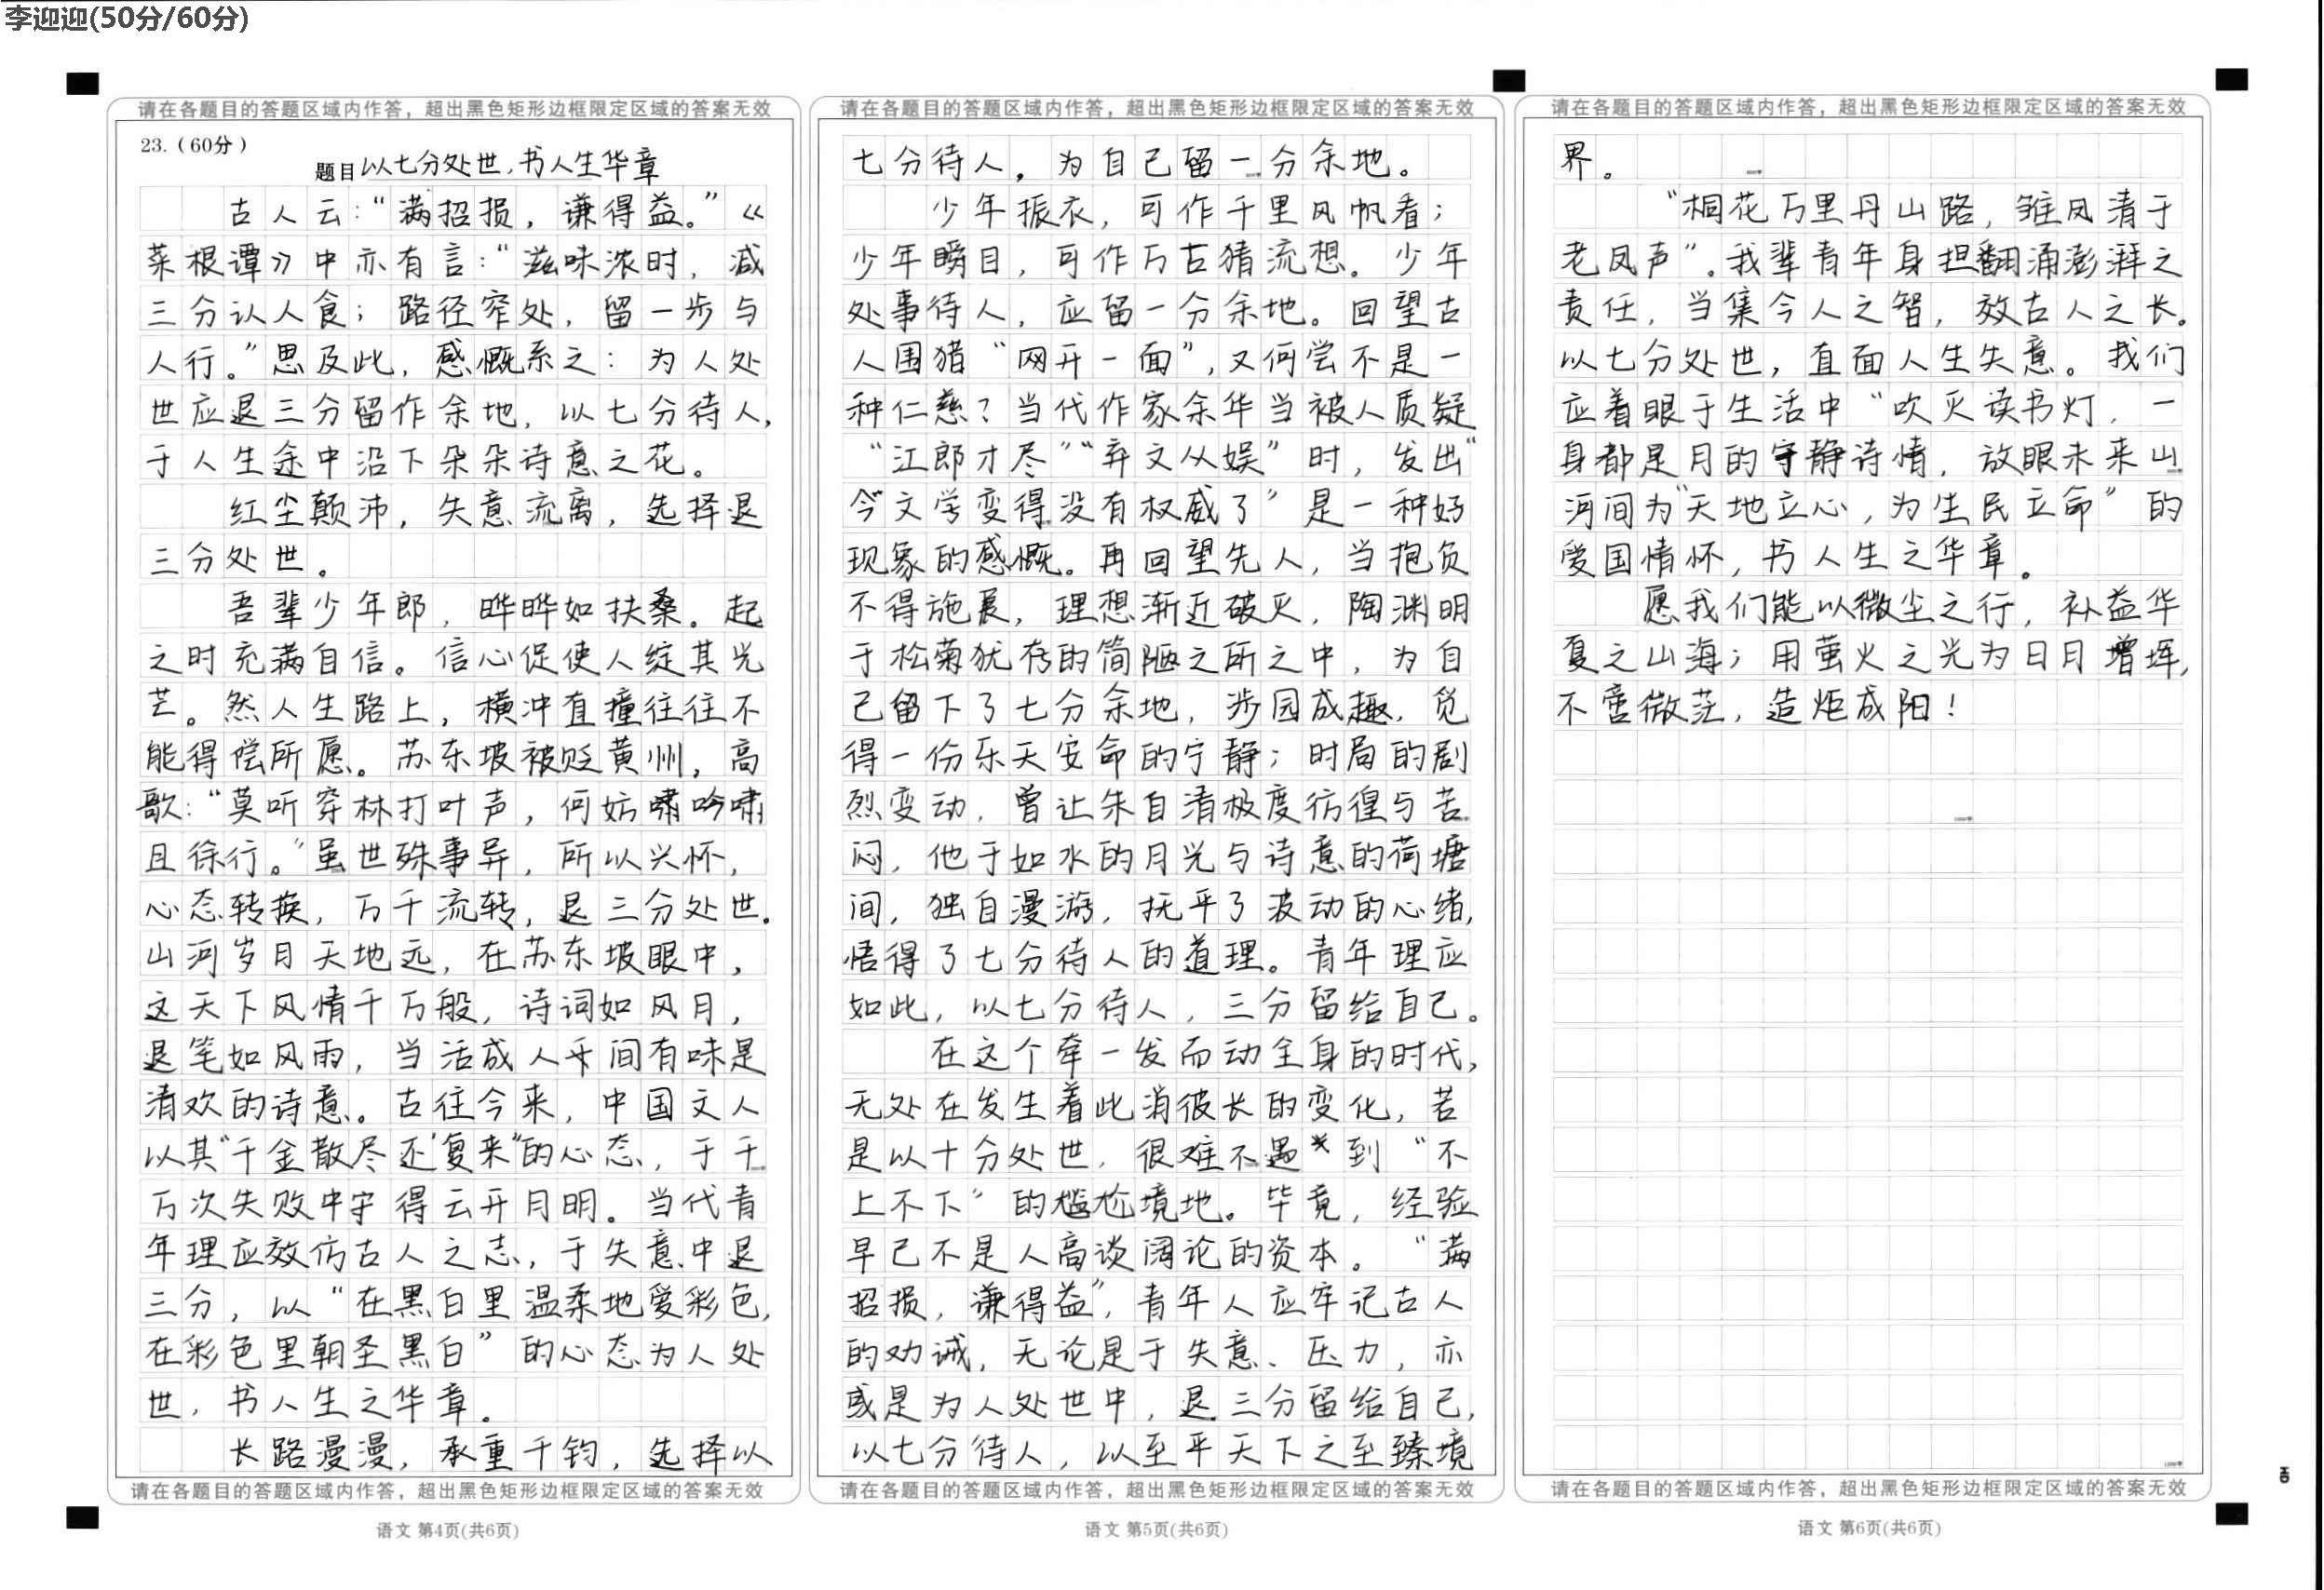 李迎迎(50分/60分)
请在各题目的答题区域内作答，超出黑色矩形边框限定区域的答案无效
23.（60分）
题目 以七分处世，书人生华章
古人云：“满招损，谦得益。”《
菜根谭》中亦有言：“滋味浓时，减
三分认人食；路径窄处，留一步与
人行。”思及此，感慨系之：为人处
世应退三分留作余地，以七分待人，
于人生途中沿下朵朵诗意之花。
红尘颠沛，失意流离，选择退
三分处世。
吾辈少年郎，晔晔如扶桑。起
之时充满自信。信心促使人绽其光
芒。然人生路上，横冲直撞往往不
能得偿所愿。苏东坡被贬黄州，高
歌：“莫听穿林打叶声，何妨啸吟啸
且徐行。”虽世殊事异，所以兴怀，
心态转换，万千流转，退三分处世。
山河岁月天地远，在苏东坡眼中，
这天下风情千万般，诗词如风月，
退笔如风雨，当活成人间有味是
清欢的诗意。古往今来，中国文人
以其“千金散尽还复来”的心态，于千
万次失败中守得云开月明。当代青
年理应效仿古人之志，于失意中退
三分，以“在黑白里温柔地爱彩色，
在彩色里朝圣黑白”的心态为人处
世，书人生之华章。
长路漫漫，承重千钧，选择以
请在各题目的答题区域内作答，超出黑色矩形边框限定区域的答案无效
语文 第4页(共6页)
请在各题目的答题区域内作答，超出黑色矩形边框限定区域的答案无效
七分待人，为自己留一分余地。
少年振衣，可作千里风帆看；
少年瞬目，可作万古猜流想。少年
处事待人，应留一分余地。回望古
人围猎“网开一面”，又何尝不是一
种仁慈？当代作家余华当被人质疑
“江郎才尽”“弃文从娱”时，发出“
今文学变得没有权威了”是一种好
现象的感慨。再回望先人，当抱负
不得施展，理想渐近破灭，陶渊明
于松菊犹存的简陋之所之中，为自
己留下了七分余地，涉园成趣，觅
得一份乐天安命的宁静；时局的剧
烈变动，曾让朱自清极度彷徨与苦
闷，他于如水的月光与诗意的荷塘
间，独自漫游，抚平了波动的心绪，
悟得了七分待人的道理。青年理应
如此，以七分待人，三分留给自己。
在这个牵一发而动全身的时代，
无处在发生着此消彼长的变化，若
是以十分处世，很难不遇到“不
上不下”的尴尬境地。毕竟，经验
早已不是人高谈阔论的资本。“满
招损，谦得益”，青年人应牢记古人
的劝诫，无论是于失意、压力，亦
或是为人处世中，退三分留给自己，
以七分待人，以至平天下之至臻境
请在各题目的答题区域内作答，超出黑色矩形边框限定区域的答案无效
语文 第5页(共6页)
请在各题目的答题区域内作答，超出黑色矩形边框限定区域的答案无效
界。
“桐花万里丹山路，雏凤清于
老凤声”。我辈青年身担翻涌澎湃之
责任，当集今人之智，效古人之长。
以七分处世，直面人生失意。我们
应着眼于生活中“吹灭读书灯，一
身都是月的守静诗情，放眼未来山
河间为“天地立心，为生民立命”的
爱国情怀，书人生之华章。
愿我们能以微尘之行，补益华
夏之山海；用萤火之光为日月增晖，
不啻微茫，造炬成阳！
请在各题目的答题区域内作答，超出黑色矩形边框限定区域的答案无效
语文 第6页(共6页)